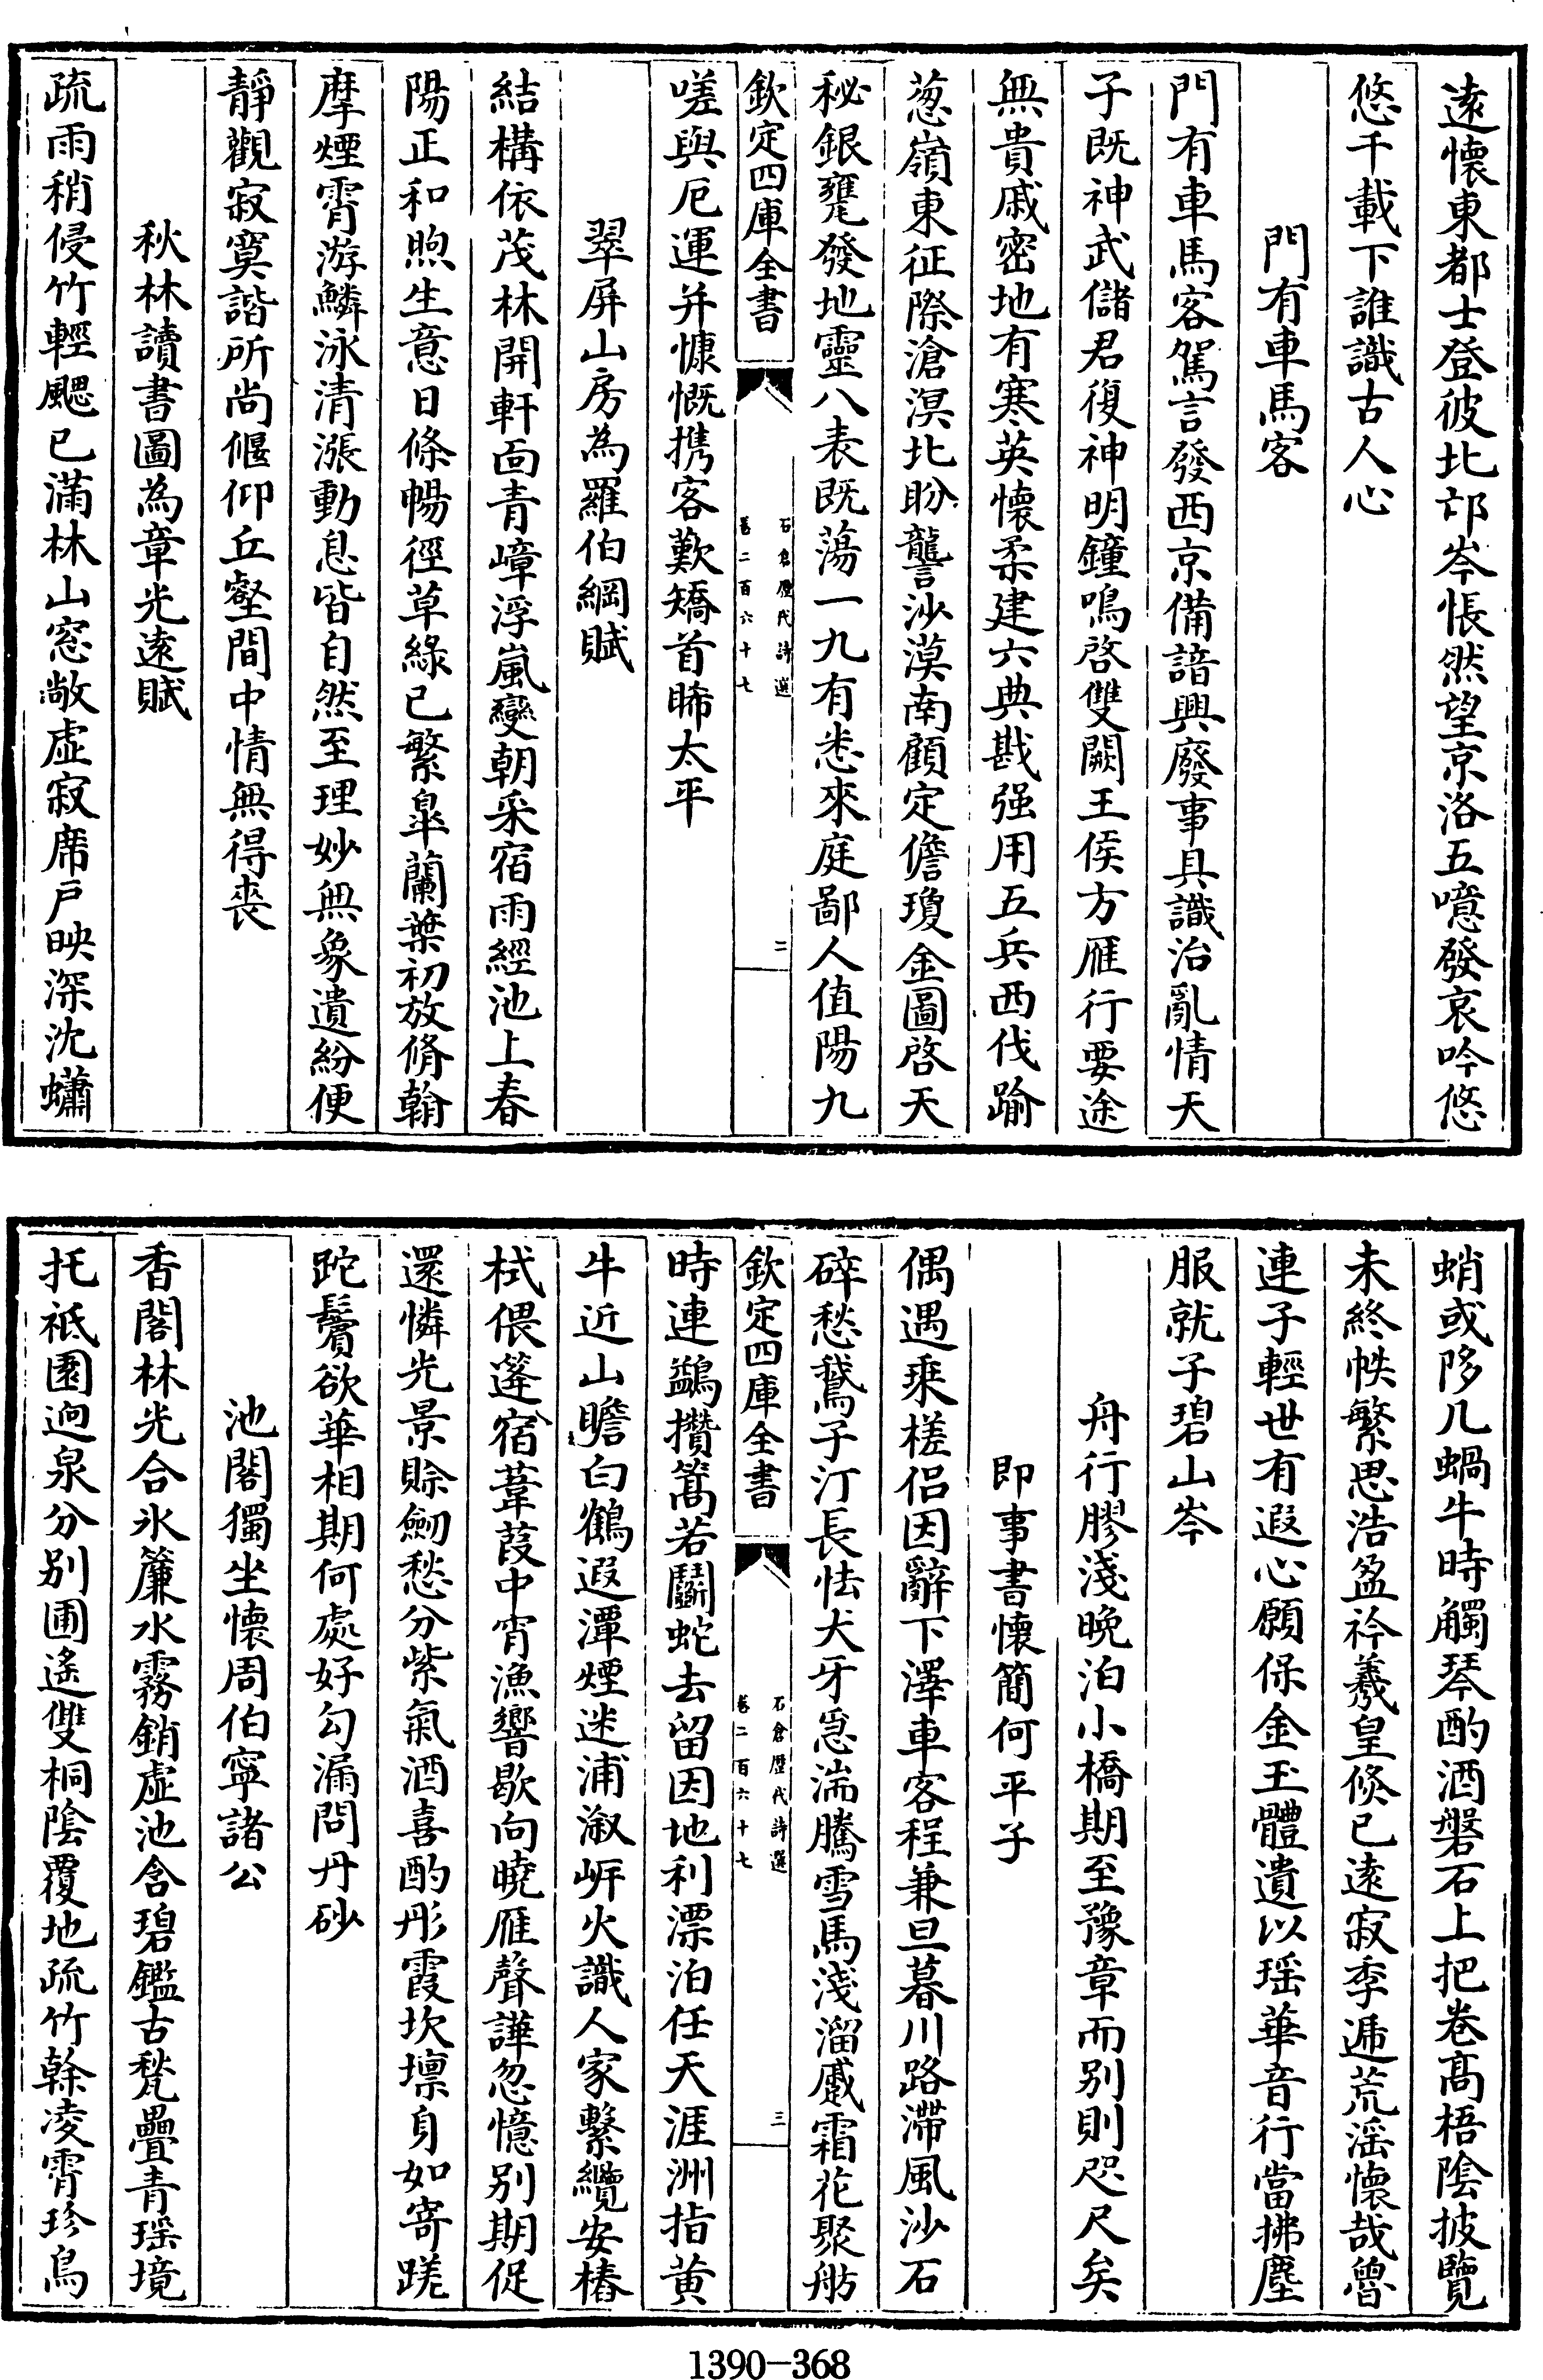 遠懷東都士登彼北邙岑悵然望京洛五噫發哀吟悠
悠千載下誰識古人心
門有車馬客
門有車馬客駕言發西京備諳興廢事具識治亂情天
子既神武儲君復神明鐘鳴啓雙闕王侯方雁行要途
無貴戚密地有寒英懷柔建六典戡强用五兵西伐踰
葱嶺東征際滄溟北盼讋沙漠南顧定儋瓊金圖啓天
秘銀甕發地靈八表既蕩一九有悉來庭鄙人值陽九
欽定四庫全書
石倉歷代詩選
卷二百六十七
二
嗟與厄運并慷慨携客歎矯首睎太平
翠屏山房為羅伯綱賦
結構依茂林開軒面青嶂浮嵐變朝采宿雨經池上春
陽正和煦生意日條暢徑草綠已繁皐蘭葉初放脩翰
摩煙霄游鱗泳清漲動息皆自然至理妙無象遺紛便
靜觀寂寞諧所尚偃仰丘壑間中情無得喪
秋林讀書圖為章光遠賦
疏雨稍侵竹輕颸已滿林山窓敞虛寂席戸映深沈蠨
蛸或陊几蝸牛時觸琴酌酒磐石上把卷髙梧陰披覽
未終帙繁思浩盈衿羲皇倐已遠寂李逓荒滛懷哉魯
連子輕世有遐心願保金玉體遺以瑶華音行當拂塵
服就子碧山岑
舟行膠淺晚泊小橋期至豫章而别則咫尺矣
即事書懷簡何平子
偶遇乗槎侣因辭下澤車客程兼旦暮川路滯風沙石
碎愁鵞子汀長怯犬牙急湍騰雪馬淺溜蹙霜花聚舫
欽定四庫全書
石倉歷代詩選
卷二百六十七
三
時連鷁攢篙若鬬蛇去留因地利漂泊任天涯洲指黄
牛近山瞻白鶴遐潭煙迷浦溆岍火識人家繫纜安樁
栻偎篷宿葦葭中宵漁響歇向曉雁聲譁忽憶别期促
還憐光景賒劒愁分紫氣酒喜酌彤霞坎壈身如寄蹉
跎鬢欲華相期何處好勾漏問丹砂
池閣獨坐懷周伯寧諸公
香閣林光合氷簾水霧銷虛池含碧鑑古甃疊青瑶境
托祇園逈泉分别圃遙雙桐陰覆地疏竹榦凌霄珍鳥
1390-368